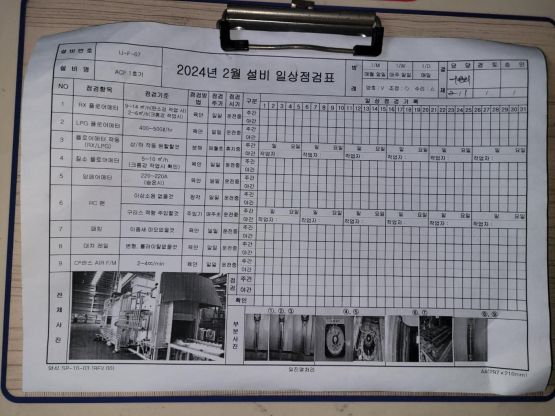 설비번호 IJ-F-07
설비명 ACF 1호기
2024년 2월 설비 일상점검표
범례
1/M 1/W 1/D
매월 담일 매주 담일 매일
양호:V 조정:△ 수리:○
결재 담당 검토 승인
NO 점검항목 점검기준 점검방법 점검주기 점검시기 구분 일상점검기록
1 2 3 4 5 6 7 8 9 10 11 12 13 14 15 16 17 18 19 20 21 22 23 24 25 26 27 28 29 30 31
1 RX 플로어메타 육안 일일 운전중 주간 야간
2 LPG 플로어메타 육안 일일 운전중 주간 야간
3 플로어메타 작동 (RX/LPG) 상/하 작동 원활할것 분해 휴지중 일 요일
작업자:
4 질소 플로어메타 5~10 ㎥/h 육안 일일 운전중 주간 야간
5 암페어메타 220~220A (승온시) 육안 일일 운전중 주간 야간
6 RC 팬 이상소음 없을것 청각 일일 운전중 주간 야간
구리스 적량 주입할것 주입기 매주초 운전중 일 요일
작업자:
7 체인 이음새 마모없을것 육안 일일 운전중 주간 야간
8 대차 레일 육안 일일 운전중 주간 야간
9 AIR F/M 육안 일일 운전중 주간 야간
점검 주간 야간
확인
전체사진
부분사진
①, ②, ③ ④, ⑤ ⑥, ⑦ ⑧, ⑨
양식 SP-10-03 (REV.00)
A4(297×210mm)